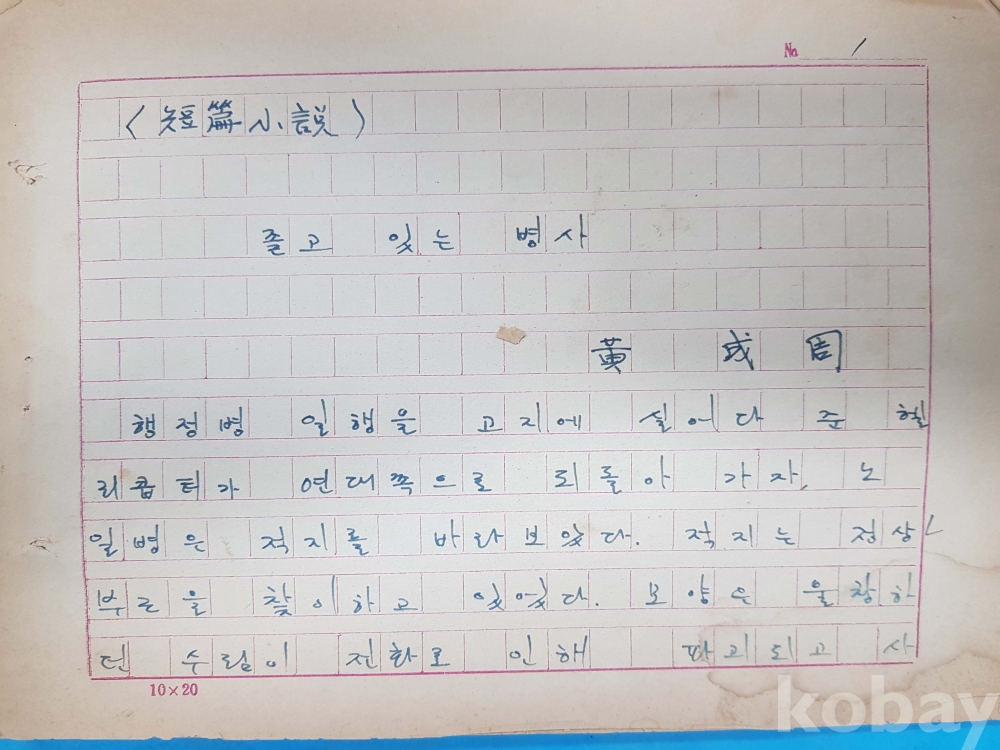 No. 1
〈短篇小説〉
졸고 있는 병사
黃成周
행정병 일행을 고지에 실어다 준 헬
리콥터가 연대쪽으로 되돌아 가자, 노
일병은 적지를 바라보았다. 적지는 정상
부근을 찾이하고 있었다. 모양은 울창하
던 수림이 전화로 인해 파괴되고 사
10×20
kobay